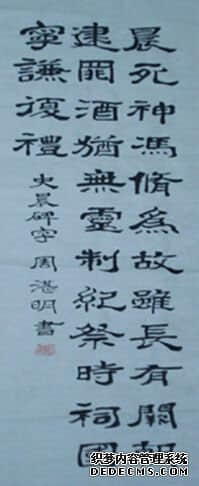 晨死神馮脩為故雖長有闕朝
建酒猶無靈制紀祭時祠國
寧謙復禮
史晨碑字 周湛明書
织梦内容管理系统
DEDECMS.COM